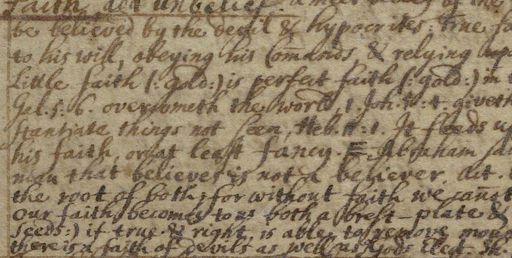 Faith, act unbelief. a meer
be believed by the devil & hypocrites; true fa
to his will, obeying his Comands, & relying upo
Little faith (: gold:) is perfect faith (: gold:) in t
Gal. 5: 6. overcometh the world, 1. Joh. 5: 4: giveth
stantiate things not seen, Heb. 11: 1. It feeds u
his faith, or at least fancy. Abraham sa
man that believes is not a believer. act. t
the root of both; for without faith we canot
Our faith becomes to us both a brest-plate &
seeds:) if true & right, is able to remove moun
there is a faith of devils as well as Gods Elect.